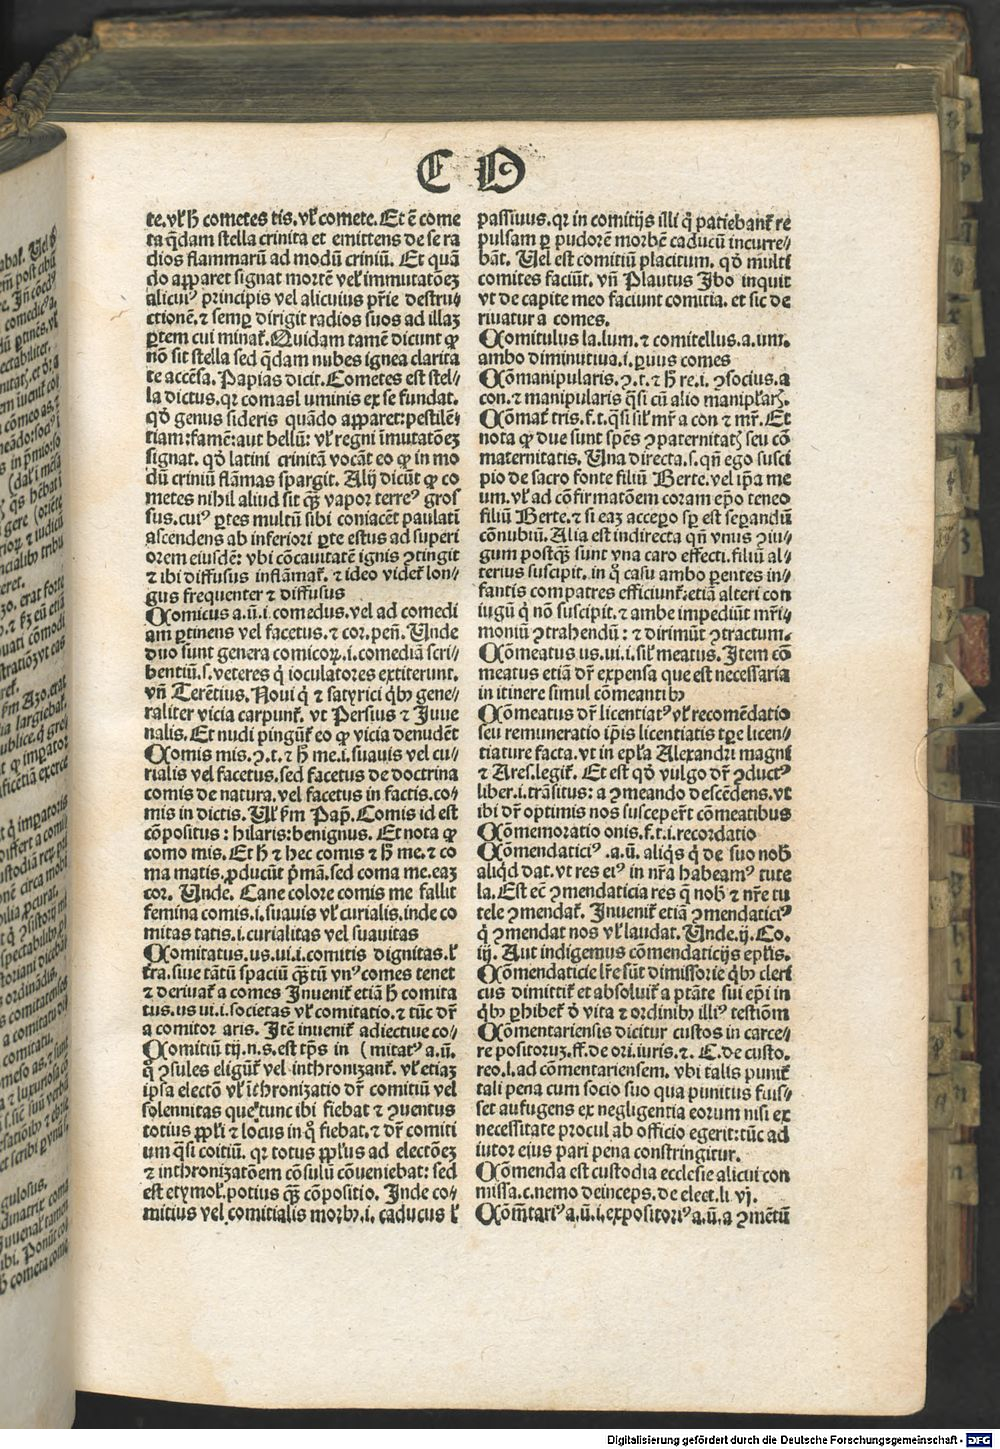 C O
te. vl̕ h̕ cometes tis. vl̕ comete. Et ē come
ta q̄dam stella crinita et emittens de se ra
dios flammarū ad modū criniū. Et quā
do apparet signat mortē vel̕ immutatōeꝫ
alicuiꝰ principis vel alicuius prīe destru⸗
ctionē. ⁊ semꝑ dirigit radios suos ad illaꝫ
ꝑtem cui minat̕. Quidam tamē dicunt ꝙ
nō sit stella sed q̄dam nubes ignea clarita
te accēsa. Papias dicit. Cometes est stel⸗
la dictus. qꝛ comasl uminis ex se fundat.
qd̕ genus sideris quādo apparet: pestilē⸗
tiam: famē: aut bellū: vl̕ regni īmutatōeꝫ
signat. qd̕ latini crinitā vocāt eo ꝙ in mo
dū criniū flāmas spargit. Alij dicūt ꝙ co
metes nihil aliud sit qꝫ vapor terreꝰ gros
sus. cuiꝰ ꝑtes multū sibi coniacēt paulatī
ascendens ab inferiori ꝑte estus ad superi
orem eiusdē: vbi cōcauitatē ignis ꝯtingit
⁊ ibi diffusus inflāmat̕. ⁊ ideo videt̕ lon⸗
gus frequenter ⁊ diffusus
Comicus a. ū. i. comedus. vel ad comedi
am ꝑtinens vel facetus. ⁊ cor. pen̄. Unde
duo sunt genera comicoꝝ. i. comediā scri⸗
bentiū. s. veteres q̄ ioculatores extiterunt.
vn̄ Terētius. Noui q̄ ⁊ satyrici qͥbꝫ gene⸗
raliter vicia carpunt̕. vt Persius ⁊ Juue
nalis. Et nudi pingūt̕ eo ꝙ vicia denudēt
Comis mis. ꝯ. t. ⁊ h̕ me. i. suauis vel cu⸗
rialis vel facetus. sed facetus de doctrina
comis de natura. vel facetus in factis. co⸗
mis in dictis. Ul̕ ẜm Pap̄. Comis id est
cōpositus: hilaris: benignus. Et nota ꝙ
como mis. Et h̕ ⁊ hec comis ⁊ h̕ me. ⁊ co
ma matis. ꝓducūt p̄mā. sed coma me. eaꝫ
cor. Unde. Cane colore comis me fallit
femina comis. i. suauis vl̕ curialis. inde co
mitas tatis. i. curialitas vel suauitas
Comitatus. us. ui. i. comitis dignitas. l̕
tr̄a. siue tātū spaciū qꝫtū vnꝰ comes tenet
⁊ deriuat̕ a comes Inuenit̕ etiā h̕ comita
tus. us ui. i. societas vl̕ comitatio. ⁊ tūc dr̄
a comitor aris. Itē inuenit̕ adiectiue co⸗
Comitiū tij. n. s. est tp̄s in (mitatꝰ a. ū.
q̄ ꝯsules eligūt̕ vel inthronizant̕. vl̕ etiaꝫ
ipsa electō vl̕ īthronizatio dr̄ comitiū vel
solennitas que tunc ibi fiebat ⁊ ꝯuentus
totius ppl̕i ⁊ locus in q̊ fiebat. ⁊ dr̄ comiti
um q̄si coitiū. qꝛ totus ppl̕us ad electōeꝫ
⁊ inthronizatōem cōsulū cōueniebat: sed
est etymol̕. potius qꝫ cōpositio. Inde co⸗
mitius vel comitialis morbꝫ. i. caducus l̕
passiuus. qꝛ in comitijs illi q̄ patiebant̕ re
pulsam ꝑ pudorē morbē caducū incurre⸗
bāt. Uel est comitiū placitum. qd̕ m̄lti
comites faciūt. vn̄ Plautus Ibo inquit
vt de capite meo faciunt comitia. et sic de
riuatur a comes.
Comitulus la. lum. ⁊ comitellus. a. um.
ambo diminutiua. i. ꝑuus comes
Cōmanipularis. ꝯ. t. ⁊ h̕ re. i. ꝯsocius. a
con. ⁊ manipularis q̄si cū alio manipl̕arꝭ.
Cōmat̕ tris. f. t. q̄si sil̕ mr̄ a con ⁊ mr̄. Et
nota ꝙ due sunt spēs ꝯpaternitatꝭ seu cō
maternitatis. Una directa. s. qn̄ ego susci
pio de sacro fonte filiū Berte. vel ip̄a me
um. vl̕ ad cōfirmatōem coram ep̄o teneo
filiū Berte. ⁊ si eaꝫ accepo sꝑ est seꝑandū
cōnubiū. Alia est indirecta qn̄ vnus ꝯiu⸗
gum postqꝫ sunt vna caro effecti. filiū al⸗
terius suscipit. in q̊ casu ambo ꝑentes in⸗
fantis compatres efficiunt̕. etiā alteri con
iugū q̄ nō suscipit. ⁊ ambe impediūt mr̄i⸗
moniū ꝯtrahendū: ⁊ dirimūt ꝯtractum.
Cōmeatus us. ui. i. sil̕ meatus. Item cō
meatus etiā dr̄ expensa que est necessaria
in itinere simul cōmeantibꝫ
Cōmeatus dr̄ licentiatꝰ vl̕ recomēdatio
seu remuneratio ip̄is licentiatis tꝑe licen⸗
tiature facta. vt in epl̕a Alexandri magni
⁊ Ares. legit̕. Et est qd̕ vulgo dr̄ ꝯductꝰ
liber. i. trāsitus: a ꝯmeando descēdens. vt
ibi dr̄ optimis nos suscepert̕ cōmeatibus
Cōmemoratio onis. f. t. i. recordatio
Cōmendaticiꝰ. a. ū. aliq̄s q̄ de suo nob̕
aliq̄d dat. vt res eiꝰ in nr̄a habeamꝰ tute
la. Est ec̄ ꝯmendaticia res q̄ nob̕ ⁊ nr̄e tu
tele ꝯmendat̕. Inuenit̕ etiā ꝯmendaticiꝰ
q̄ ꝯmendat nos vl̕ laudat. Unde. ij. Co.
iij. Aut indigemus cōmendaticijs epl̕is.
Cōmendaticie lr̄e sūt dimissorie qͥbꝫ cleri
cus dimittit̕ et absoluit̕ a ptāte sui ep̄i in
qͥbꝫ ꝑhibet̕ ď vita ⁊ ordinibꝫ illiꝰ testiōm
Cōmentariensis dicitur custos in carce⸗
re positoruꝫ. ff. de ori. iuris. ⁊. C. de custo.
reo. l. ad cōmentariensem. vbi talis punit̕
tali pena cum socio suo qua punitus fuis⸗
set aufugens ex negligentia eorum nisi ex
necessitate procul ab officio egerit: tūc ad
iutor eius pari pena constringitur.
Cōmenda est custodia ecclesie alicui con
missa. c. nemo deinceps. de elect. li. vj.
Cōm̄tariꝰ a. ū. i. expositoriꝰ a. ū. a ꝯmētū
Digitalisierung gefördert durch die Deutsche Forschungsgemeinschaft - DFG